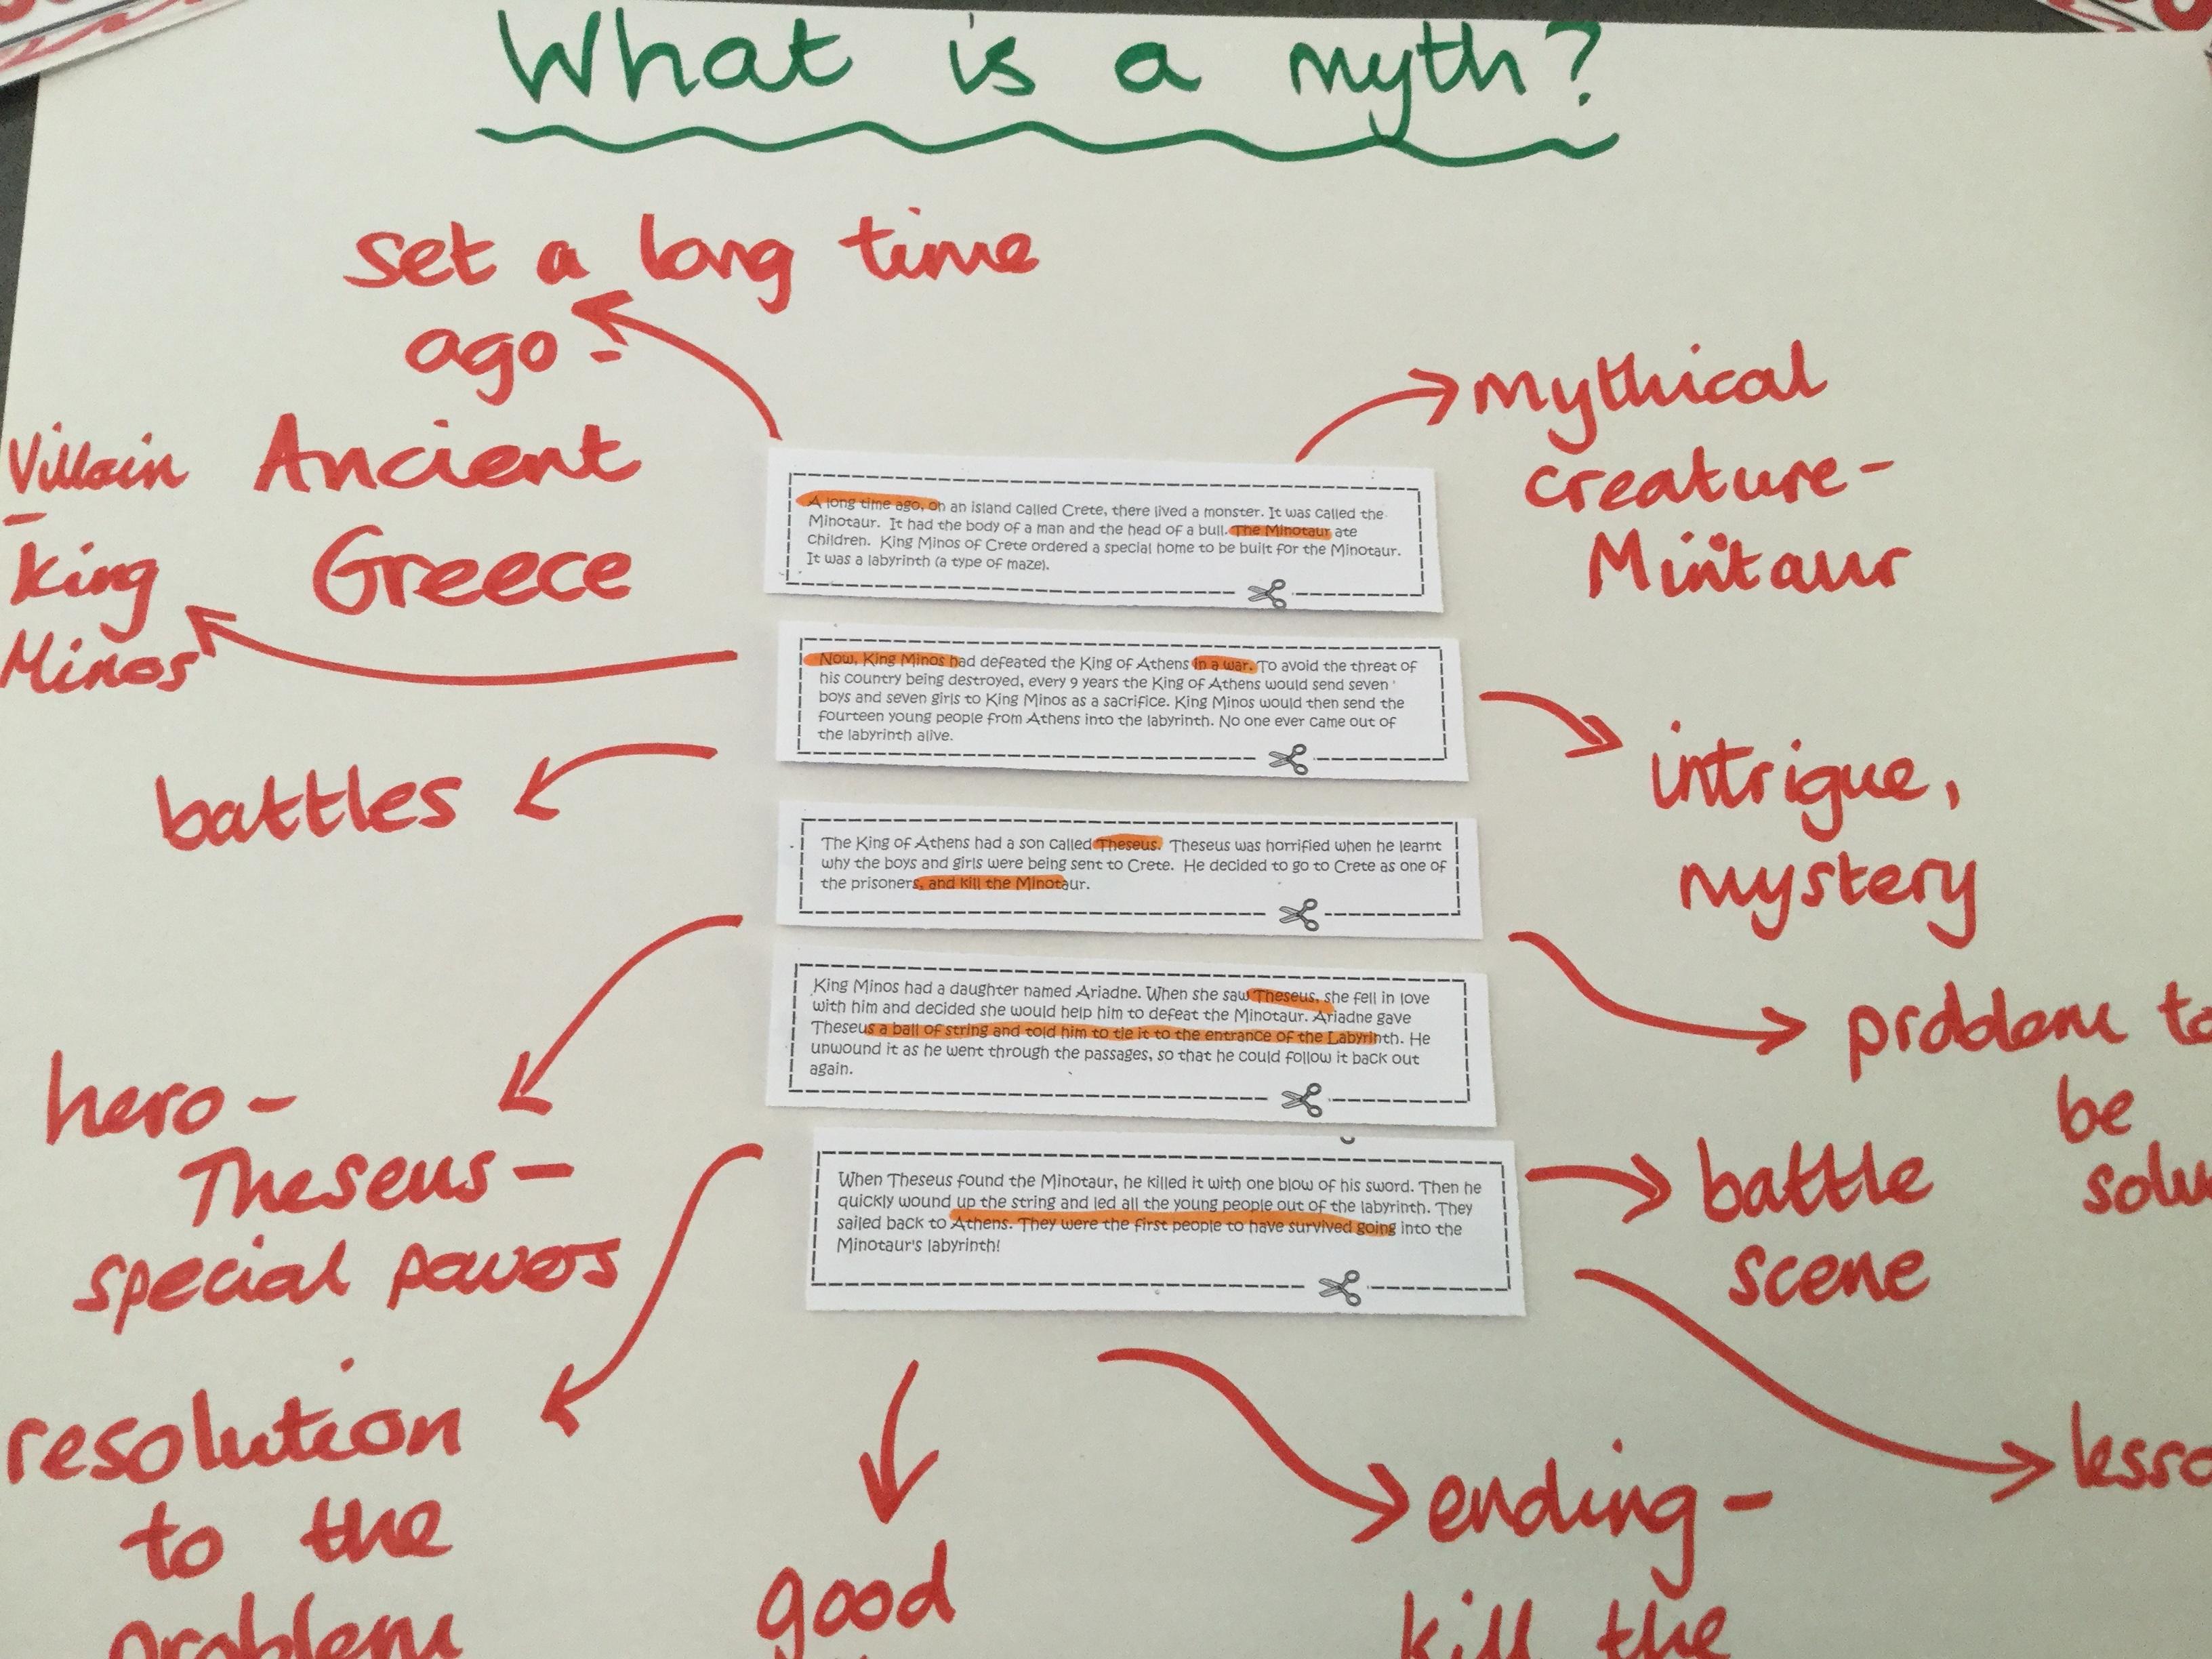 What is a myth?
set a long time
ago -
Ancient
Greece
mythical
creature -
Mintaur
Villain
-
King
Minos
A long time ago, on an island called Crete, there lived a monster. It was called the
Minotaur. It had the body of a man and the head of a bull. The Minotaur ate
children. King Minos of Crete ordered a special home to be built for the Minotaur.
It was a labyrinth (a type of maze).
Now, King Minos had defeated the King of Athens in a war. To avoid the threat of
his country being destroyed, every 9 years the King of Athens would send seven
boys and seven girls to King Minos as a sacrifice. King Minos would then send the
fourteen young people from Athens into the labyrinth. No one ever came out of
the labyrinth alive.
battles
intrigue,
mystery
The King of Athens had a son called Theseus. Theseus was horrified when he learnt
why the boys and girls were being sent to Crete. He decided to go to Crete as one of
the prisoners, and kill the Minotaur.
hero -
Theseus -
special powers
problem to
be
King Minos had a daughter named Ariadne. When she saw Theseus, she fell in love
with him and decided she would help him to defeat the Minotaur. Ariadne gave
Theseus a ball of string and told him to tie it to the entrance of the Labyrinth. He
unwound it as he went through the passages, so that he could follow it back out
again.
When Theseus found the Minotaur, he killed it with one blow of his sword. Then he
quickly wound up the string and led all the young people out of the labyrinth. They
sailed back to Athens. They were the first people to have survived going into the
Minotaur's labyrinth!
battle
scene
resolution
to the
problem
good
ending -
kill the